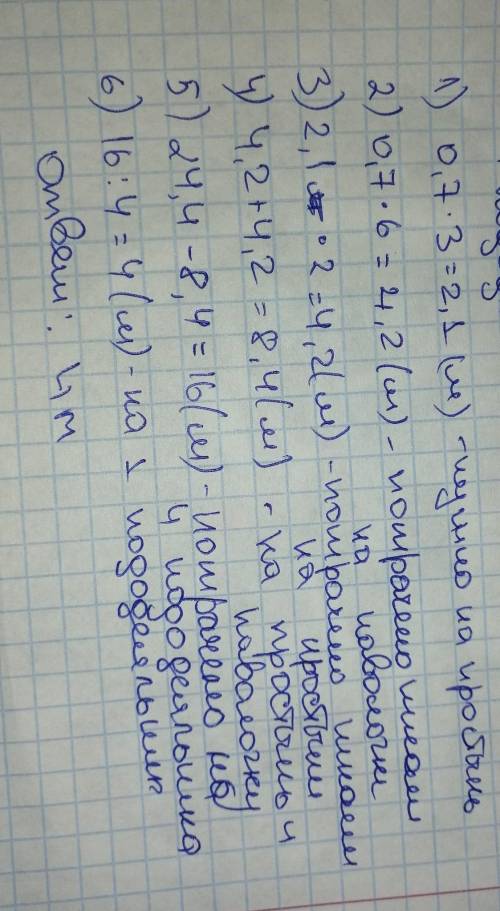 1) 0,7 · 3 = 2,1 (м) - пошло на простынь
2) 0,7 · 6 = 4,2 (м) - потрачено ткани
на наволочки
3) 2,1 · 2 = 4,2 (м) - потрачено ткани
на простыни
4) 4,2 + 4,2 = 8,4 (м) - на простынь и
наволочки
5) 24,4 - 8,4 = 16 (м) - потрачено на
4 пододеяльника
6) 16 : 4 = 4 (м) - на 1 пододеяльник
Ответ: 4 м